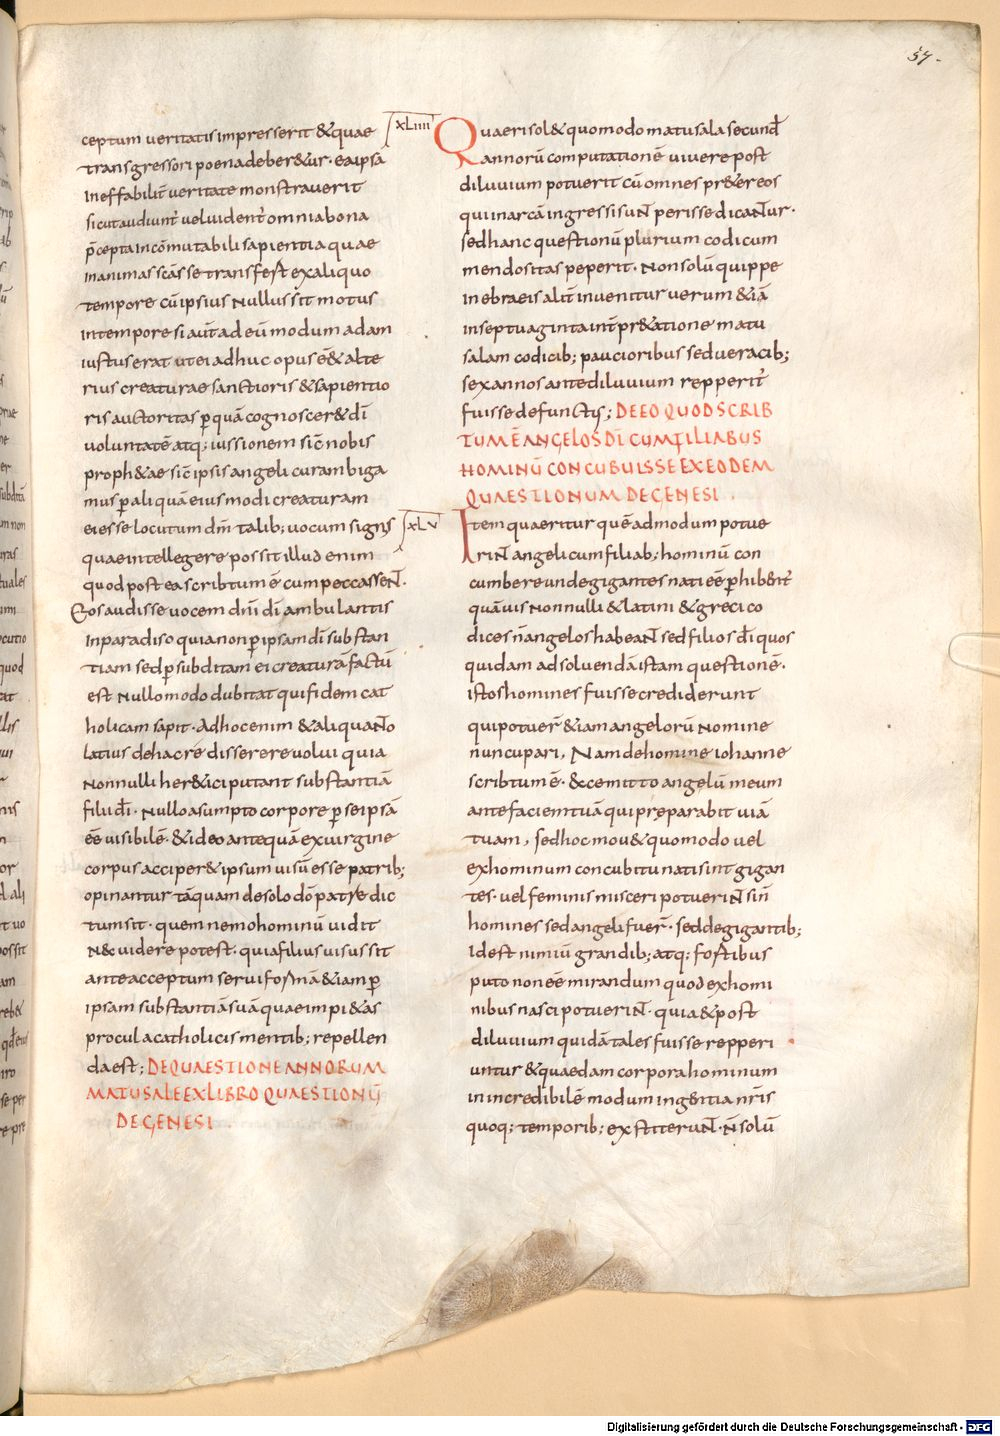 57.
ceptum veritatis impresserit &quae
transgressori poena deber&ur. ea ipsā
ineffabilit̄ veritate monstraverit
sicut audiunt̄ vel vident̄ omnia bona
p̄cepta incōmutabili sapientia quae
in animas scās se transfert ex aliquo
tempore cū ipsius nullus sit motus
in tempore si aut̄ ad eū modum adam
iustus erat ut ei adhuc opus ē& alte
rius creaturae sanctioris & sapientio
ris auctoritas p̄ quā cognoscer& dī
voluntatē atq; iussionem sic̄ nobis
proph&ae sic̄ ipsis angeli cur ambiga
mus p̄ aliquā eiusmodi creaturam
ei esse locutum dm̄ talib; vocum signis
quae intellegere possit illud enim
quod postea scribtum ē cum peccassent.
Eos audisse vocem dn̄i dī ambulantis
in paradiso quia non p̄ ipsam dī substan
tiam sed p̄ subditam ei creaturā factū
est nullo modo dubitat qui fidem cat
holicam sapit. Ad hoc enim & aliquanto
latius de hac re disserere volui quia
nonnulli her&ici putant substantiā
filii dī. nullo asumpto corpore p̄ se ipsā
eē visibilē. & ideo antequā ex virgine
corpus acciper& ipsum visū esse patrib;
opinantur tāquam de solo dō patre dic
tum sit. quem nemo hominū vidit
nec videre potest. quia filius visus sit
ante acceptum servi formā & iam p̄
ipsam substantiā suā quae impi&as
procul a catholicis mentib; repellen
da est; DE QUAESTIONE ANNORUM
MATUSALE EX LIBRO QUAESTIONŪ
DE GENESI
XLIIII
Quaeri sol& quomodo matusala secund̄
annorū computationē vivere post
diluvium potuerit cū omnes pr&er eos
qui in arcā ingressi sunt perisse dicantur.
sed hanc questionū plurium codicum
mendositas peperit. Non solū quippe
in ebraeis alit̄ invenitur verum &iā
in septuaginta int̄pr&atione matu
salam codicib; paucioribus sed veracib;
sex annos ante diluvium repperit̄
fuisse defunctis; DE EO QUOD SCRIB
TUM Ē ANGELOS DĪ CUM FILIABUS
HOMINŪ CONCUBUISSE EX EODEM
QUAESTIONUM DE GENESI .
XLV
Item quaeritur quēadmodum potue
rint angeli cum filiab; hominū con
cumbere unde gigantes nati eē p̄hibent̄
quāvis nonnulli & latini & greci co
dices n̄ angelos habeant sed filios dī quos
quidam ad solvendā istam questionē.
istos homines fuisse crediderunt
qui potuer̄ &iam angelorū nomine
nuncupari, Nam de homine iohanne
scribtum ē. & ce mitto angelū meum
ante faciem tuā qui preparabit viā
tuam, sed hoc mov& quomodo vel
ex hominum concubitu nati sint gigan
tes. vel feminis misceri potuerint si n̄
homines sed angeli fuer̄. sed de gigantib;
id est nimiū grandib; atq; fortibus
puto non eē mirandum quod ex homi
nibus nasci potuerint. quia & post
diluvium quidā tales fuisse repperi
untur & quaedam corpora hominum
in incredibilē modum ingentia nr̄is
quoq; temporib; extiterunt. n̄ solū
Digitalisierung gefördert durch die Deutsche Forschungsgemeinschaft - DFG